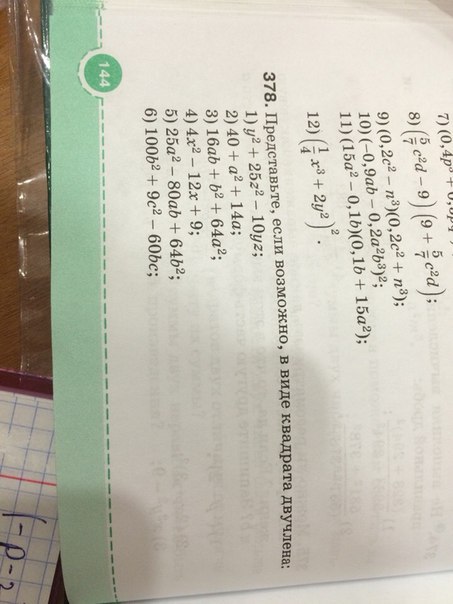 7) (0,4p³ +
8) (5/7 c²d − 9) (9 + 5/7 c²d);
9) (0,2c² − n³)(0,2c² + n³);
10) (−0,9ab − 0,2a²b³)²;
11) (15a² − 0,1b)(0,1b + 15a²);
12) (1/4 x³ + 2y²)².
378. Представьте, если возможно, в виде квадрата двучлена:
1) y² + 25z² − 10yz;
2) 40 + a² + 14a;
3) 16ab + b² + 64a²;
4) 4x² − 12x + 9;
5) 25a² − 80ab + 64b²;
6) 100b² + 9c² − 60bc;
144